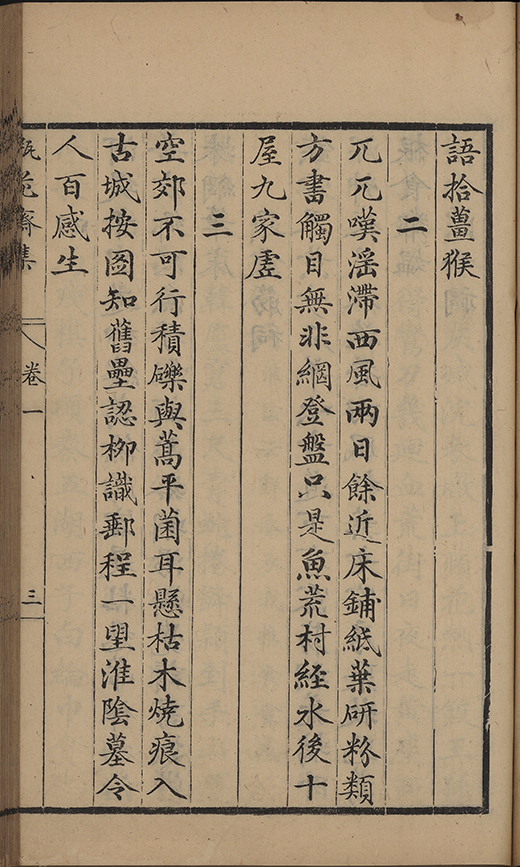 語拾薑猴
二
兀兀嘆滛滯西風兩日餘近床鋪紙葉研粉類
方書觸目無非網登盤只是魚荒村経水後十
屋九家虗
三
空郊不可行積礫與蒿平菌耳懸枯木燒痕入
古城按圖知舊壘認栁識郵程一望淮陰墓令
人百感生
瓶花齋集 卷一 三